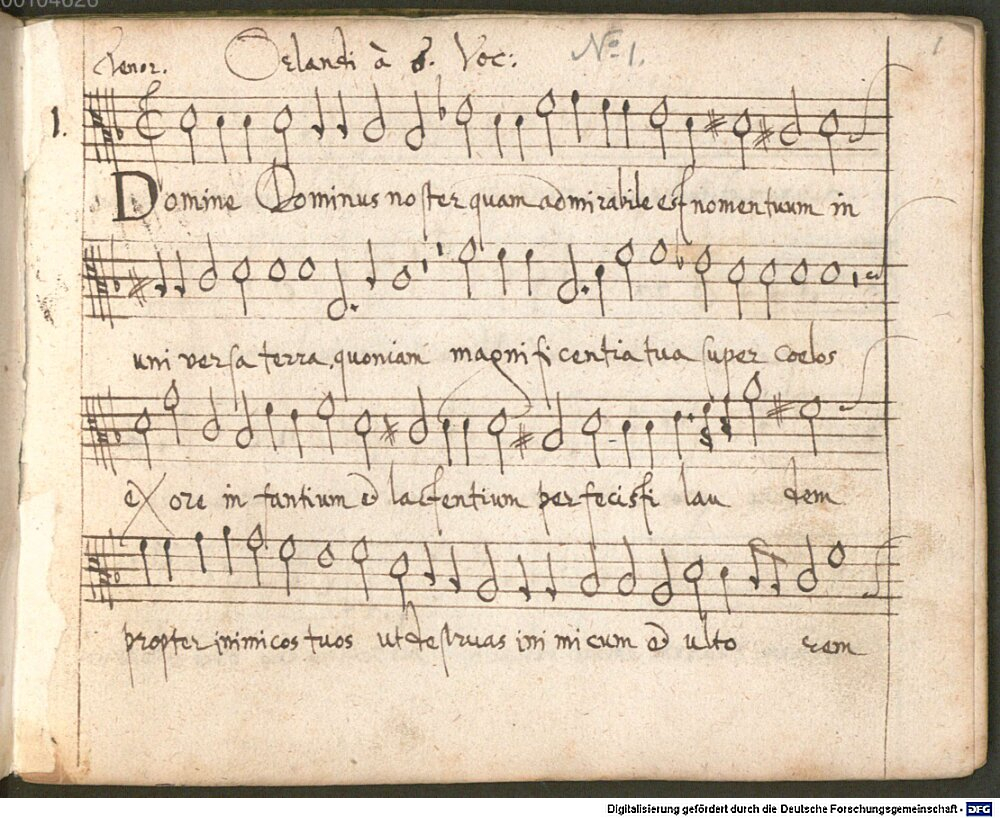 00104626
Tenor. Orlandi à 6. Voc: No 1. 1
1.
Domine Dominus noster quam admirabile est nomen tuum in
universa terra, quoniam magnificentia tua super coelos
ex ore infantium et lactentium perfecisti lau dem
propter inimicos tuos ut destruas inimicum et ulto rem
Digitalisierung gefördert durch die Deutsche Forschungsgemeinschaft - DFG